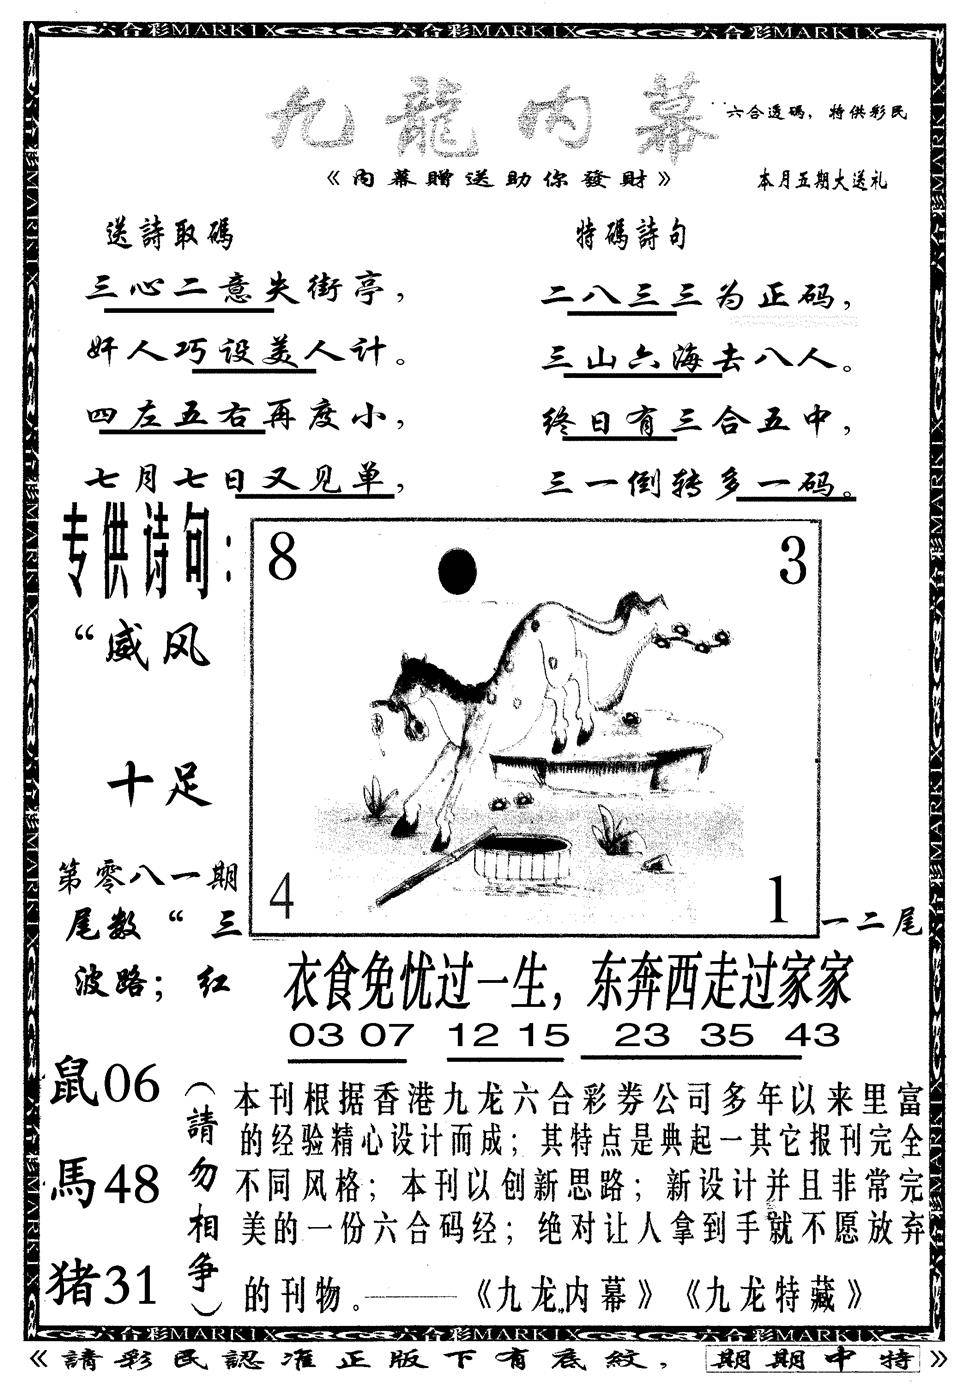 六合彩MARKIX 六合彩MARKIX 六合彩MARKIX
九龍内幕
六合透码，特供彩民
《内幕赠送助你發財》
本月五期大送礼
送詩取碼
三心二意失街亭，
奸人巧设美人计。
四左五右再度小，
七月七日又见单，
特碼詩句
二八三三为正码，
三山六海去八人。
终日有三合五中，
三一倒转多一码。
专供诗句：
“威风
十足
第零八一期
尾数“三
一二尾
波路；红
8
3
4
1
衣食免忧过一生，东奔西走过家家
03 07 12 15 23 35 43
鼠06
馬48
猪31
（請勿相争）
本刊根据香港九龙六合彩券公司多年以来里富
的经验精心设计而成；其特点是典起一其它报刊完全
不同风格；本刊以创新思路；新设计并且非常完
美的一份六合码经；绝对让人拿到手就不愿放弃
的刊物。——《九龙内幕》《九龙特藏》
六合彩MARKIX 六合彩MARKIX 六合彩MARKIX
《請彩民認准正版下有底紋，期期中特》